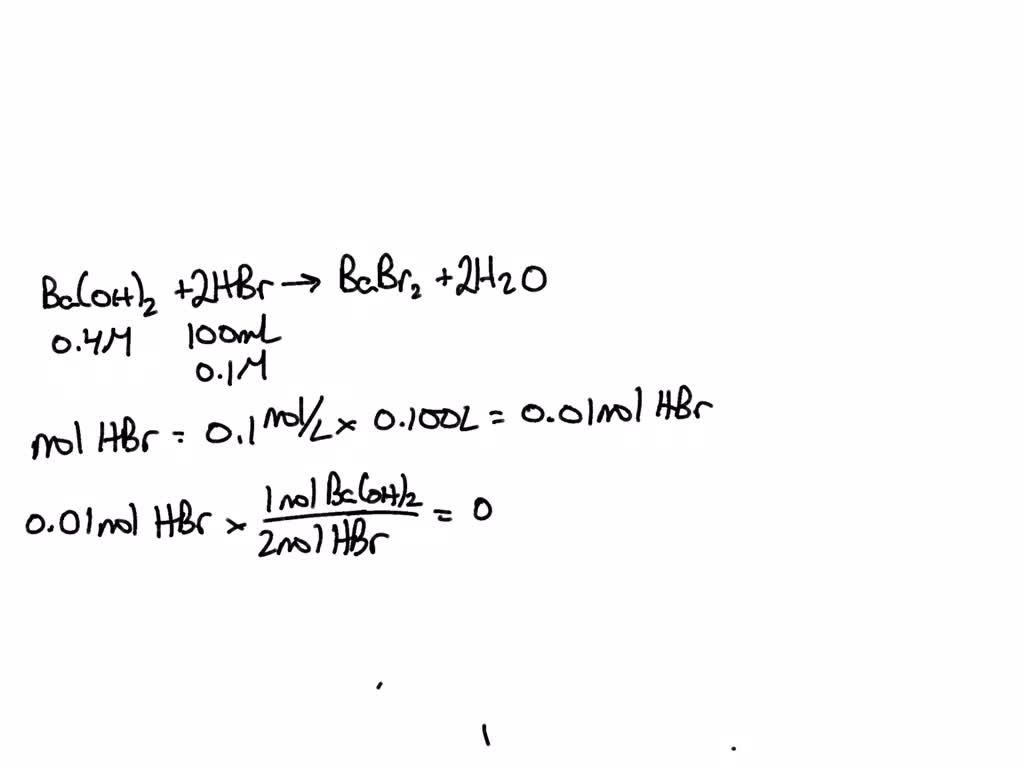 Ba(OH)₂ + 2HBr → BaBr₂ + 2H₂O
0.4M 100mL
0.1M
mol HBr = 0.1 mol/L × 0.100L = 0.01 mol HBr
0.01 mol HBr × 1 mol Ba(OH)₂ / 2 mol HBr = 0